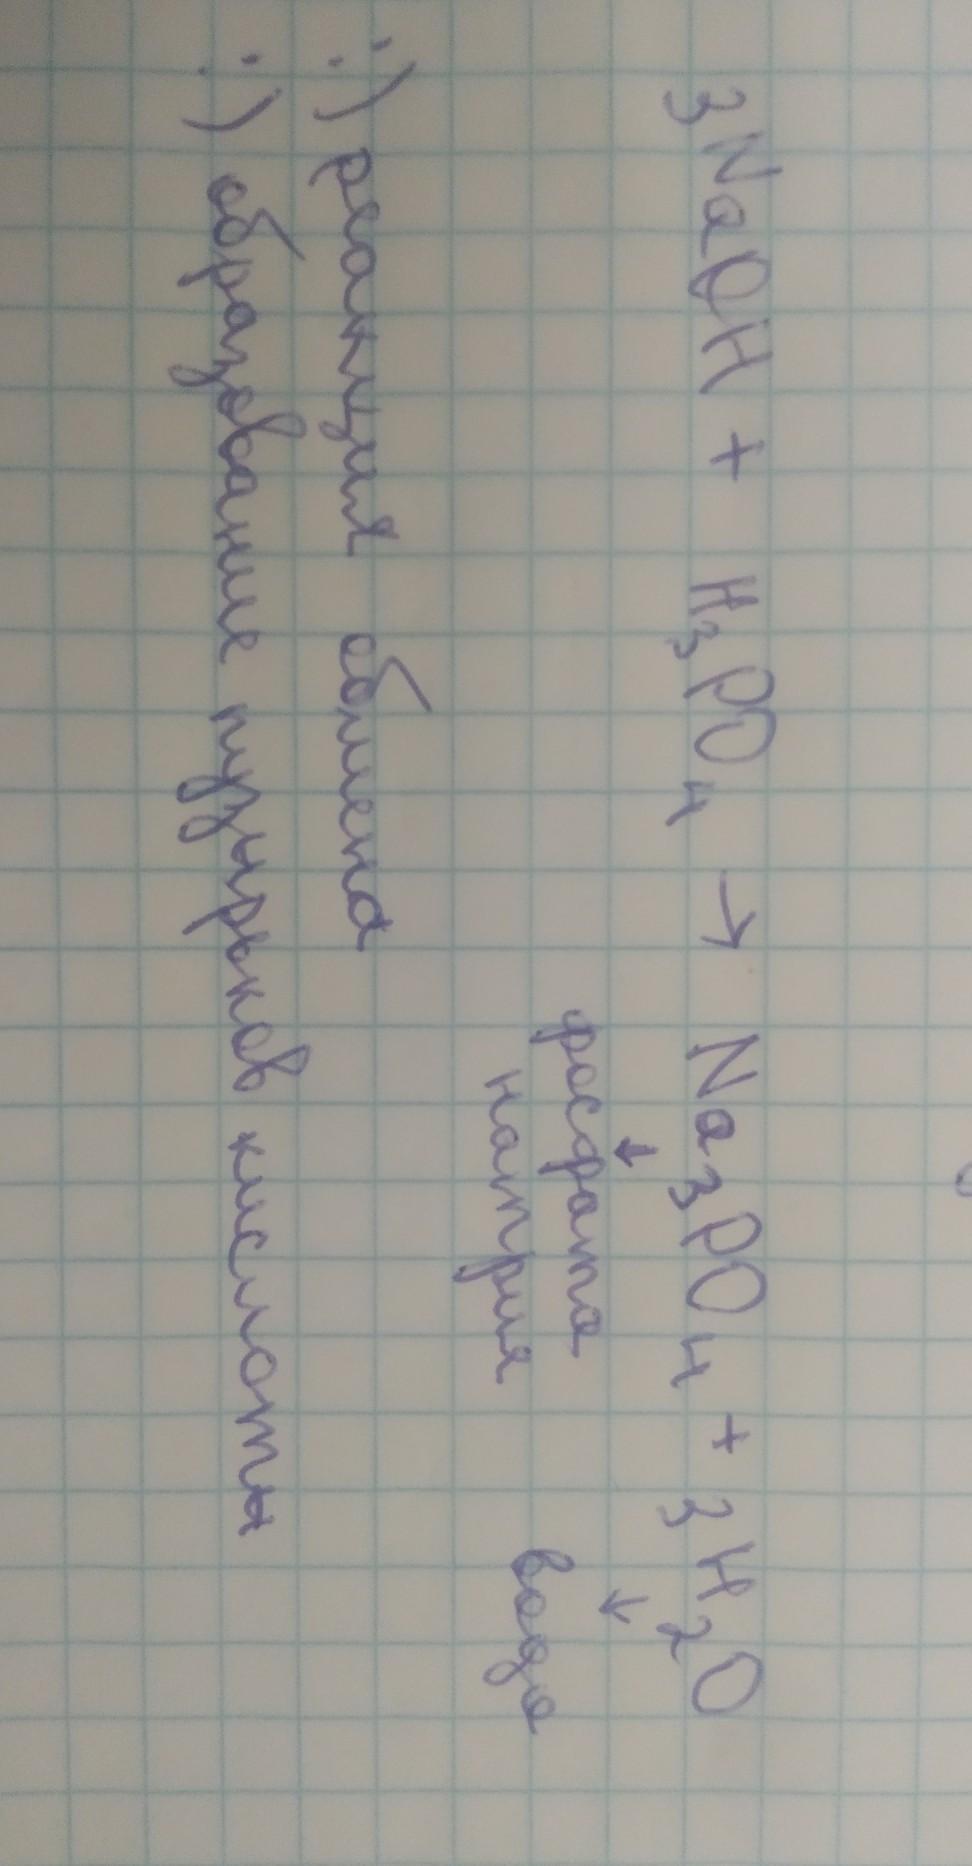 3NaOH + H₃PO₄ → Na₃PO₄ + 3H₂O
→ →
фосфата вода
натрия
:) реакция обмена
:) образование пузырьков кислоты